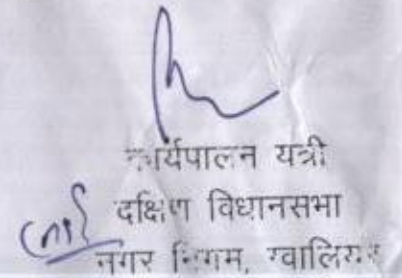 कार्यपालन यत्री
दक्षिण विधानसभा
नगर निगम, ग्वालियर